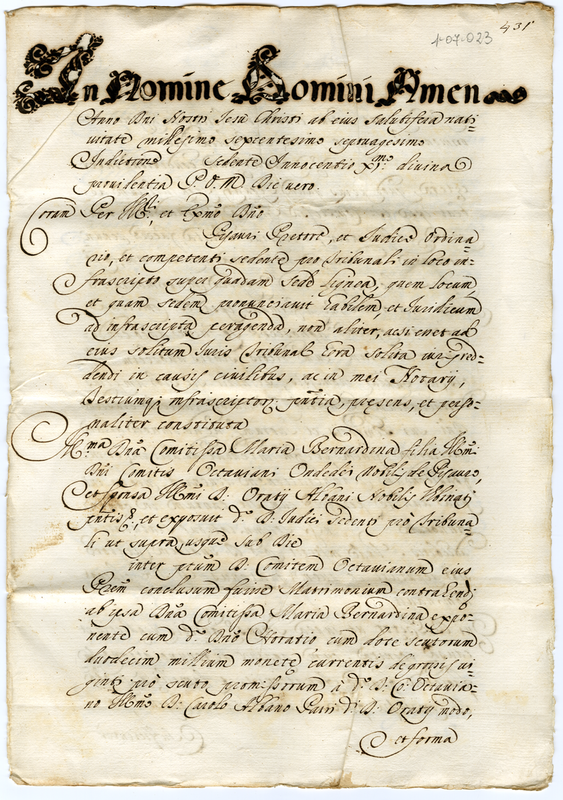 431
1-07-023
In Nomine Domini Amen
Anno Dni Nostri Iesu Christi ab eius salutifera nati-
vitate millesimo septentesimo septuagesimo
Indictione Sedente Innocentio X.mo divina
providentia P. O. M. Die vero
Coram Per Ill.i et Exmo Dno
Pisauri Pretore, et Iudice Ordina-
rio, et competenti sedente pro Tribunali in loco in-
frascripto super quadam sede lignea, quem locum
et quam sedem pronunciavit habilem et Iuridicum
ad infrascripta peragenda, non aliter, ac si esset ad
eius solitum Iuris Tribunal hora solita iur. pred-
dendi in causis civilibus, ac in mei Notarij,
Testiumq; infrascriptor. pntia, presens, et perso-
naliter constituta
Ill.ma Dna Comitissa Maria Bernardina filia Illmi
Dni Comitis Octaviani Ondedei Nobilis de Pisauro,
et sponsa Illmi D. Oratij Albani Nobilis Urbinat.
pntis, et exposuit d.o D. Iudici sedenti pro Tribuna-
li ut supra, usque sub Die
inter ptum D. Comitem Octavianum eius
Prem conclusum fuisse Matrimonium contrahend.
ab ipsa Dna Comitissa Maria Bernardina expo-
nente cum d.o Dno Horatio cum dote scutorum
duodecim millium monete currentis de grossis vi-
ginti pro scuto promissorum a d.o D. Co: Octavia-
no Illmo D. Carolo Albano Patri d.i D. Oratij modo,
et forma